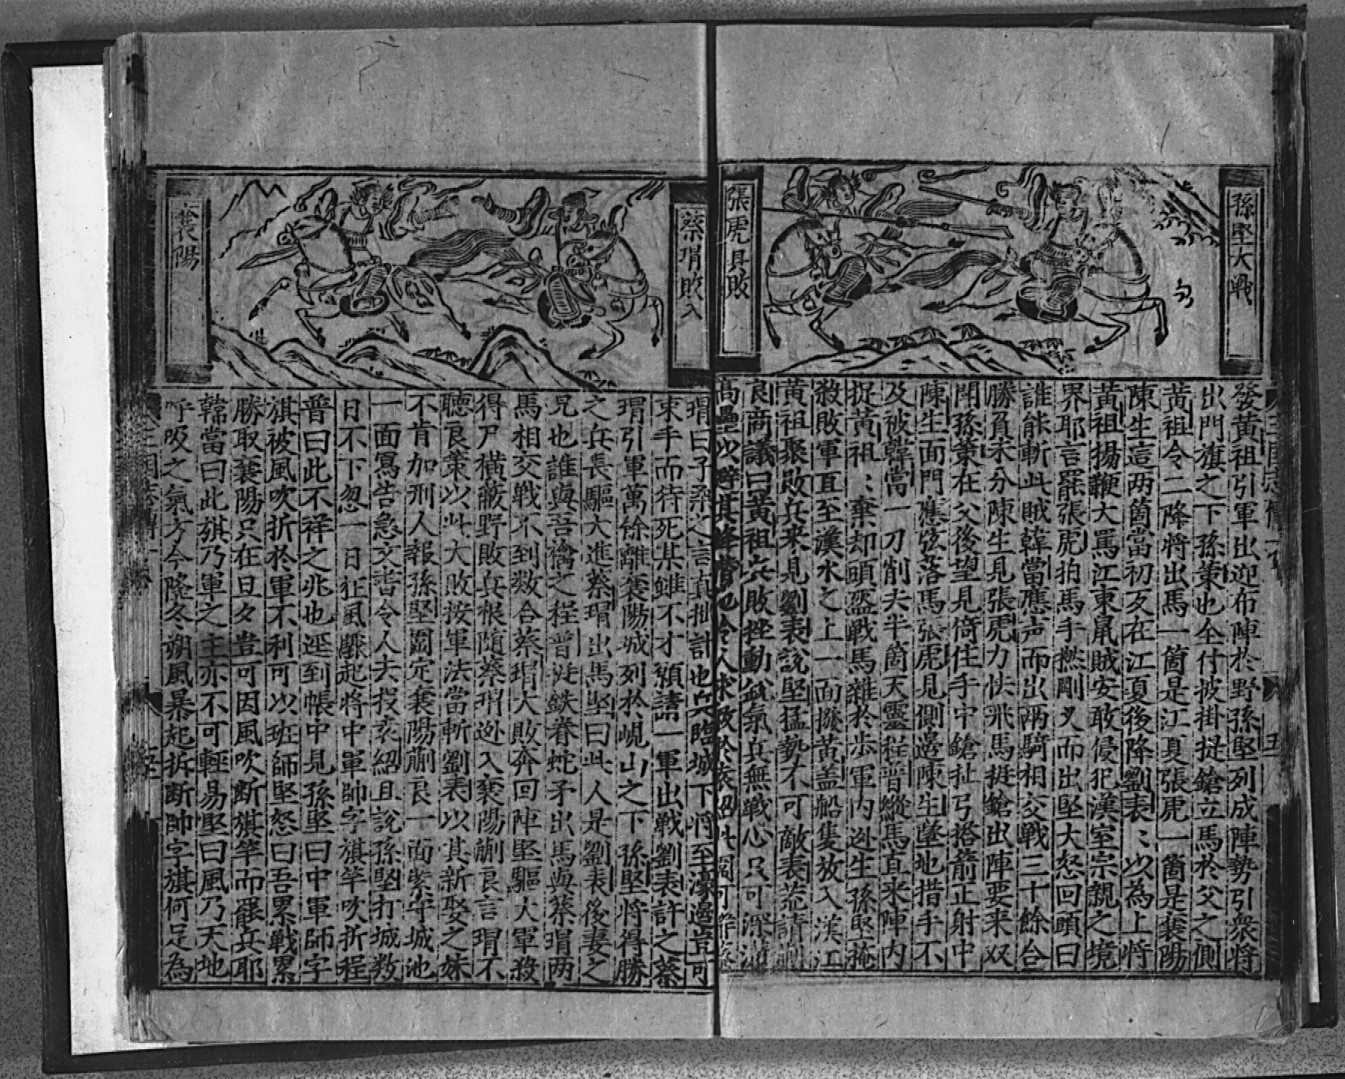 孫堅大戰
張虎具敗
發黃祖引軍出迎布陣於野孫堅列成陣勢引衆將
出門旗之下孫策也全付披掛提鎗立馬於父之側
黃祖令二降將出馬一箇是江夏張虎一箇是襄陽
陳生這兩箇當初歹在江夏後降劉表〻以為上將
黃祖揚鞭大罵江東鼠賊安敢侵犯漢室宗親之境
界耶言罷張虎拍馬手撚剛叉而出堅大怒回頭曰
誰能斬此賊韓當應声而出兩騎相交戰三十餘合
勝負未分陳生見張虎力怯飛馬挺鎗出陣要來双
閗孫策在父後望見倚住手中鎗扯弓搭箭正射中
陳生面門應弦落馬張虎見側邊陳生墜地措手不
及被韓當一刀削去半箇天靈程普縱馬直來陣内
捉黃祖〻棄却頭盔戰馬雜於歩軍内逃生孫堅掩
殺敗軍直至漢水之上一面撥黃盖船隻放入漢江
黃祖聚敗兵來見劉表說堅猛勢不可敵表荒請蒯
良商議曰黃祖兵敗挫動銳氣兵無戰心只可深溝
高壘以避其鋒
令人求救於袁紹此圍可解
蔡瑁敗入
襄陽
瑁曰子柔之言真拙計也兵臨城下將至濠邊豈可
束手而待死某雖不才預請一軍出戰劉表許之蔡
瑁引軍萬餘離襄陽城列於峴山之下孫堅將得勝
之兵長驅大進蔡瑁出馬堅曰此人是劉表後妻之
兄也誰與吾擒之程普挺鉄脊蛇矛出馬與蔡瑁两
馬相交戰不到数合蔡瑁大敗奔回陣堅驅大軍殺
得尸橫蔽野敗兵恨随蔡瑁逃入襄陽蒯良言瑁不
聽良策以此大敗按軍法當斬劉表以其新娶之妹
不肯加刑人報孫堅圍定襄陽蒯良一面緊守城池
一面寫告急文書令人去投袁紹且說孫堅打城数
日不下忽一日狂風驟起將中軍帥字旗竿吹折程
普曰此不祥之兆也逕到帳中見孫堅曰中軍師字
旗被風吹折於軍不利可以班師堅怒曰吾累戰累
勝取襄陽只在旦夕豈可因風吹斷旗竿而罷兵耶
韓當曰此旗乃軍之主亦不可輕易堅曰風乃天地
呼吸之氣方今隆冬朔風暴起折断帥字旗何足為